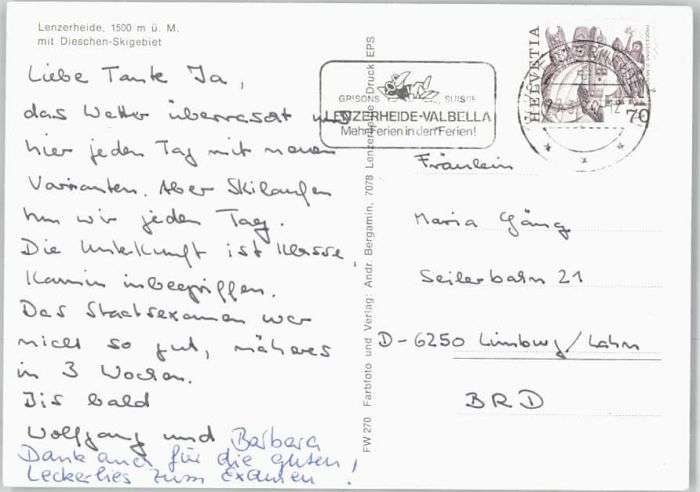 Lenzerheide, 1500 m ü. M.
mit Dieschen-Skigebiet
Liebe Tante Ja,
das Wetter überrascht uns
hier jeden Tag mit neuen
Varianten. Aber Skilaufen
tun wir jeden Tag.
Die Unterkunft ist Klasse,
Kamin inbegriffen.
Das Staatsexamen war
nicht so gut, näheres
in 3 Wochen.
Bis bald
Wolfgang und Barbara
Dank auch für die guten
Leckerlies zum Examen!
FW 270 Farbfoto und Verlag: Andr. Bergamin, 7078 Lenzerheide Druck EPS
GRISONS SUISSE
LENZERHEIDE-VALBELLA
Mehr Ferien in den Ferien!
HELVETIA
70
Fräulein
Maria Gäng
Seilerbahn 21
D-6250 Limburg/Lahn
BRD